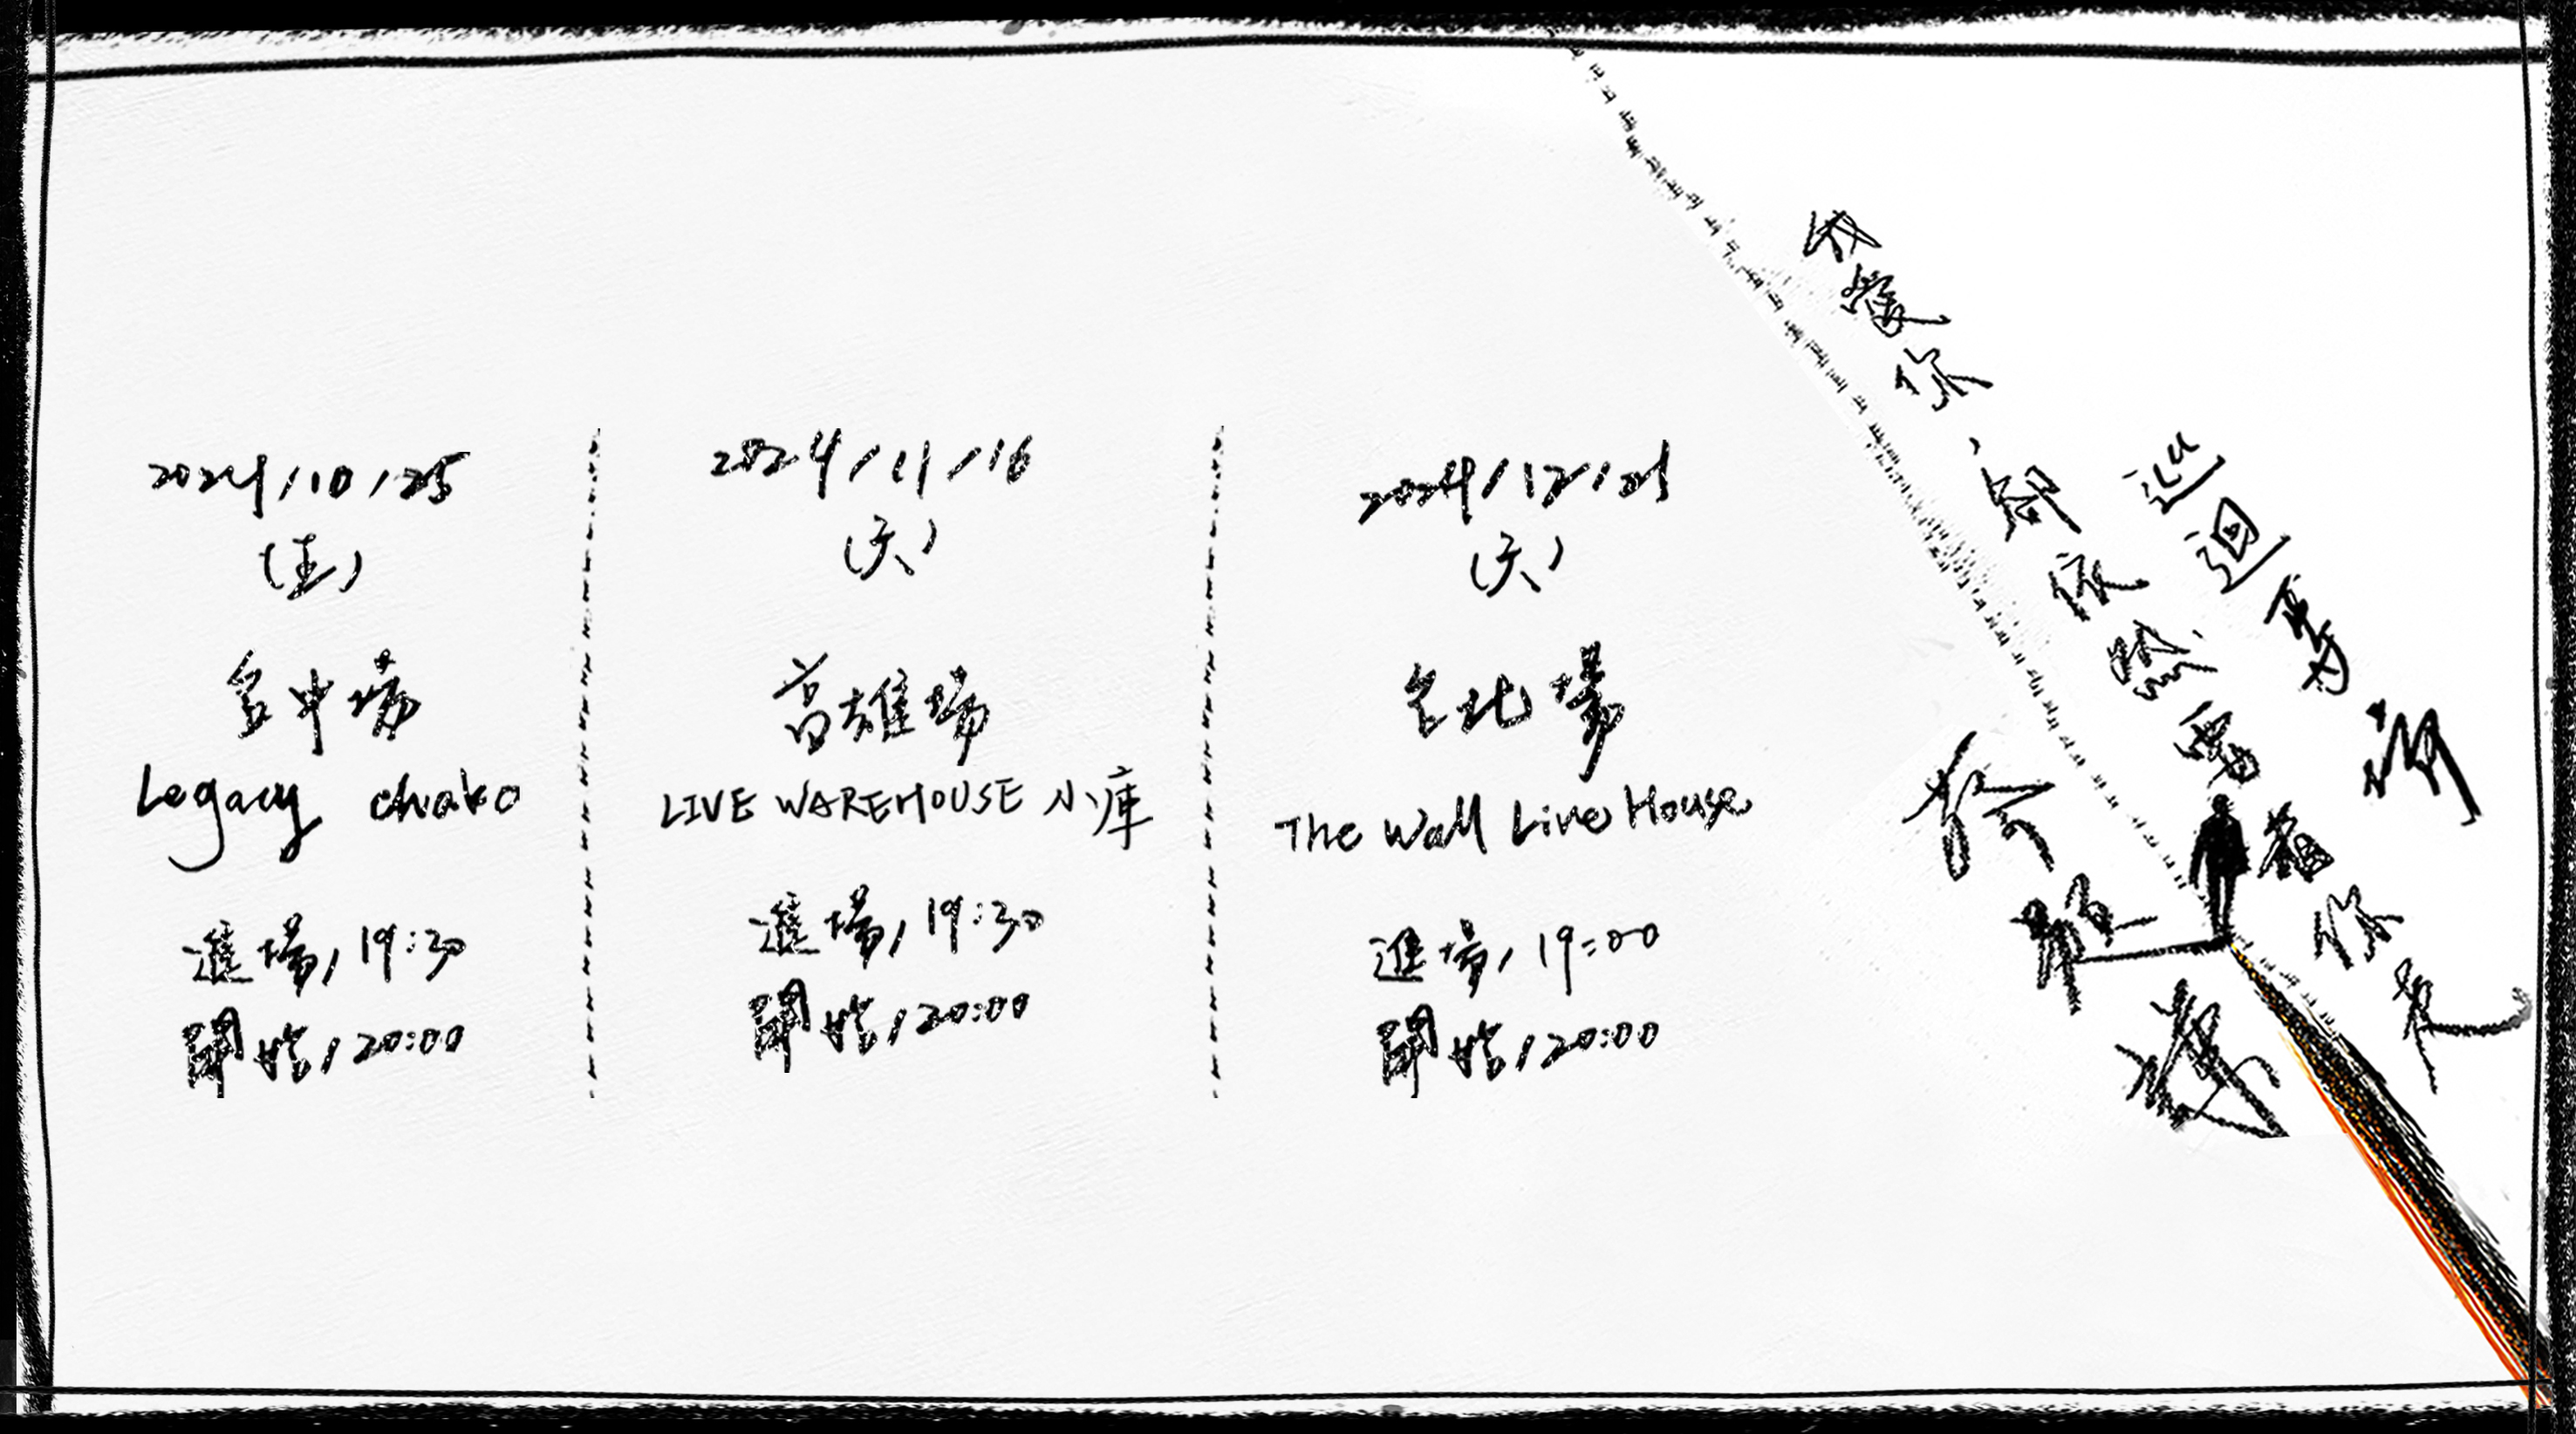 2024/10/25
(五)
台中場
Legacy chako
進場/19:30
開始/20:00
2024/11/16
(六)
高雄場
LIVE WAREHOUSE 小庫
進場/19:30
開始/20:00
2024/12/21
(六)
台北場
The Wall Live House
進場/19:00
開始/20:00
我愛你、卻依然
巡迴專場